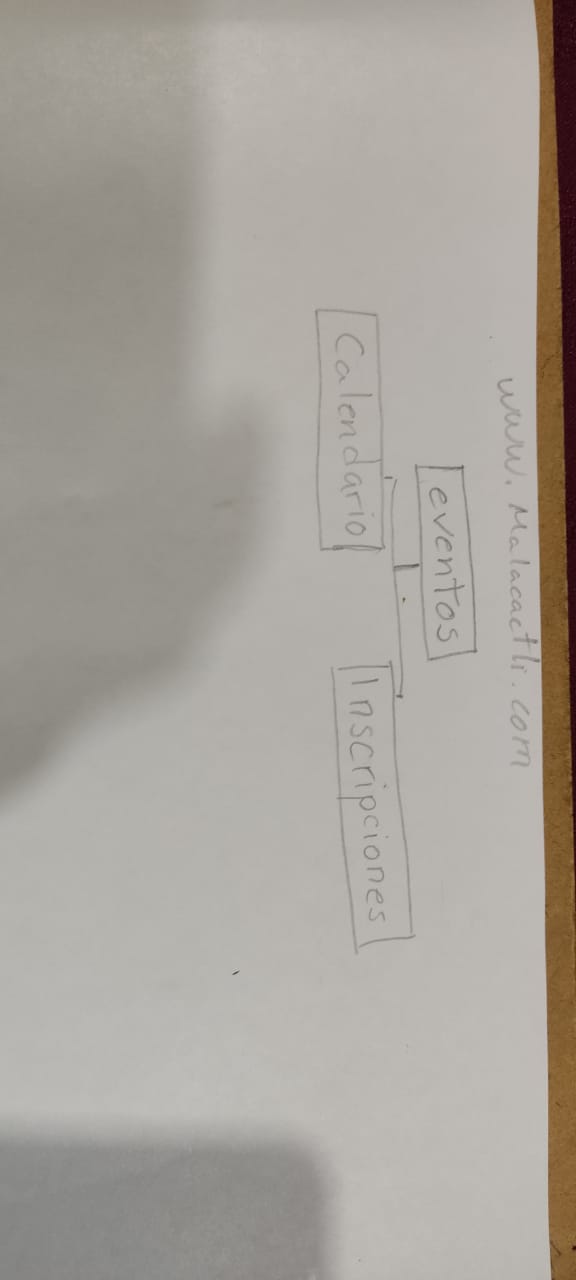 www.Malacactli.com
eventos
Calendario
Inscripciones